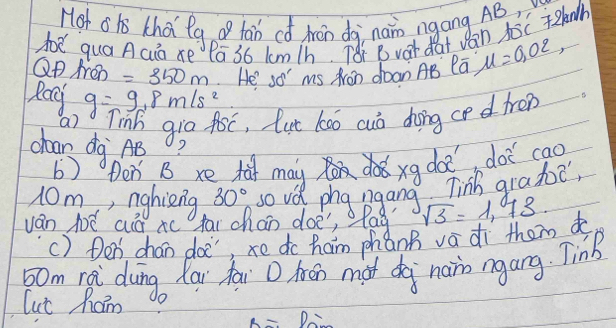 Một ô tô khối lg 2 tấn cđ trên đg nằm ngang AB, v
tốc qua A của xe là 36 km/h. Tới B vật đạt vận tốc 72km/h
QĐ trên = 350 m. Hệ số ms trên đoạn AB là μ = 0,02,
lấy g = 9,8 m/s²
a) Tính gia tốc, lực kéo của động cơ trên
đoạn đg AB?
b) Đến B xe tắt máy xg dốc, dốc cao
10m, nghiêng 30° so với phg ngang. Tính gia tốc,
vận tốc của xe tại chân dốc, lấy √3 = 1,73.
c) Đến chân dốc, xe đc hãm phanh và đi thêm đc
50m rồi dừng lại tại D trên một đg nằm ngang. Tính
lực hãm?
Bài làm